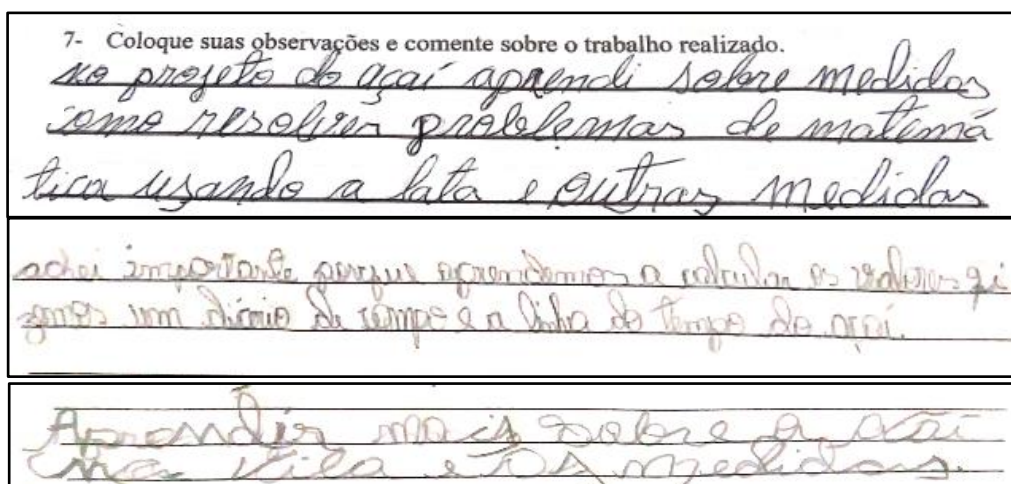 7- Coloque suas observações e comente sobre o trabalho realizado.
no projeto do açaí aprendi sobre medidas
como resolver problemas de matemá
tica usando a lata e outras medidas
achei importante porque aprendemos a calcular os valores fi
zemos um diário de campo e a linha do tempo do açaí.
Aprendir mais sobre o açaí
na vila e as medidas.